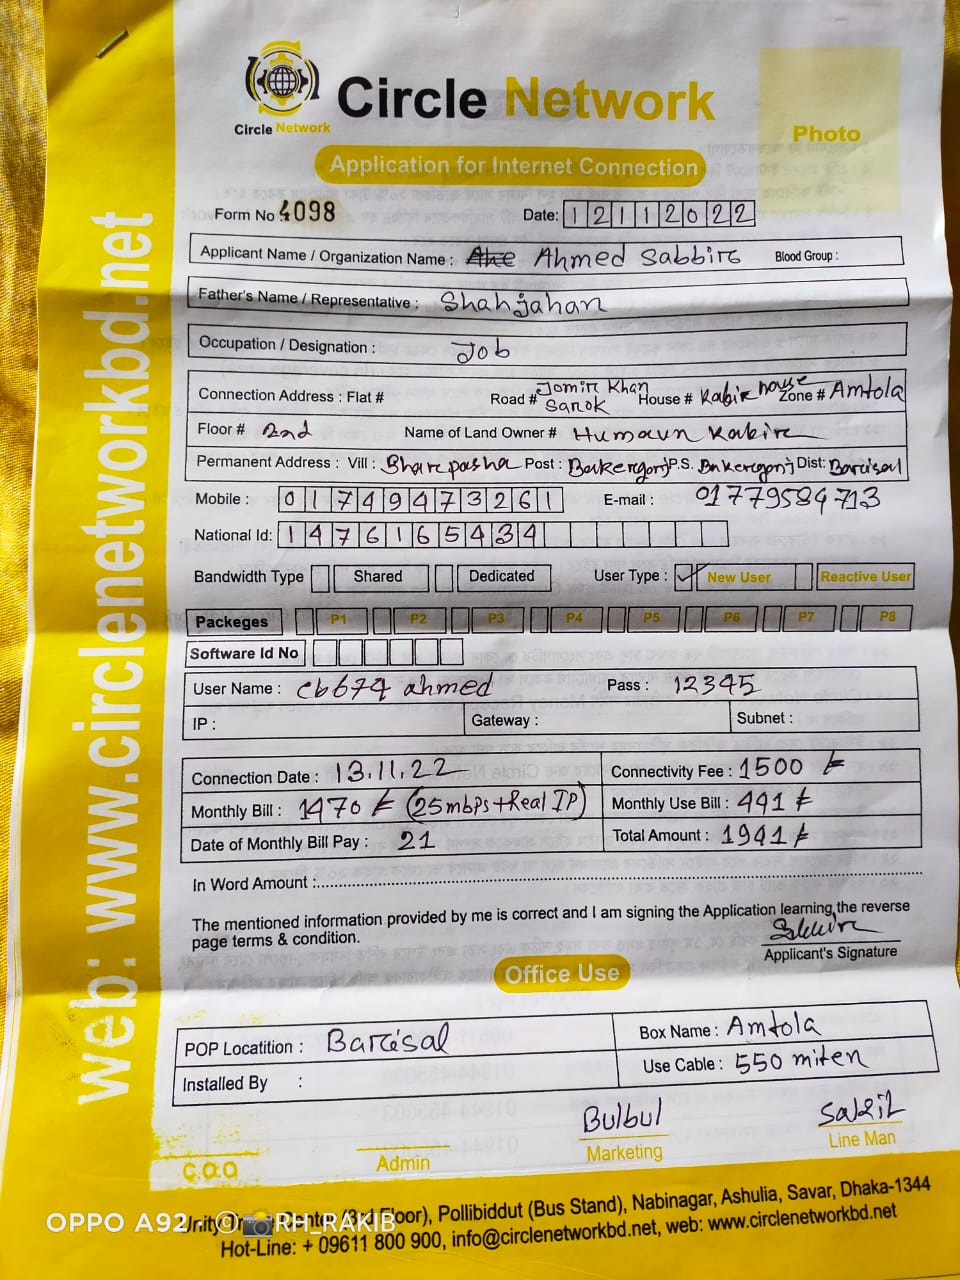 Circle Network
Circle Network
Photo
Application for Internet Connection
Form No 4098 Date: 1 2 1 1 2 0 2 2
Applicant Name / Organization Name : Ahmed Sabbir Blood Group :
Father's Name / Representative : Shahjahan
Occupation / Designation : Job
Connection Address : Flat # Road # Jomir Khan Sarok House # Kabir house Zone # Amtola
Floor # 2nd Name of Land Owner # Humaun Kabir
Permanent Address : Vill : Bharpasha Post : Bakergonj P.S. Bakergonj Dist: Barisal
Mobile : 01749473261 E-mail : 01779584713
National Id: 1476165434
Bandwidth Type Shared Dedicated User Type : ✓ New User Reactive User
Packeges P1 P2 P3 P4 P5 P6 P7 P8
Software Id No
User Name : cb674 ahmed Pass : 12345
IP : Gateway : Subnet :
Connection Date : 13.11.22 Connectivity Fee : 1500 ৳
Monthly Bill : 1470 ৳ (25mbps+Real IP) Monthly Use Bill : 441 ৳
Date of Monthly Bill Pay : 21 Total Amount : 1941 ৳
In Word Amount :
The mentioned information provided by me is correct and I am signing the Application learning,the reverse
page terms & condition.
Sabbir
Applicant's Signature
Office Use
POP Locatition : Barisal Box Name : Amtola
Installed By : Use Cable : 550 miter
Bulbul
C.O.O Admin Marketing Line Man
(3rd Floor), Pollibiddut (Bus Stand), Nabinagar, Ashulia, Savar, Dhaka-1344
Hot-Line: + 09611 800 900, info@circlenetworkbd.net, web: www.circlenetworkbd.net
web: www.circlenetworkbd.net
OPPO A92 · © RH_RAKIB